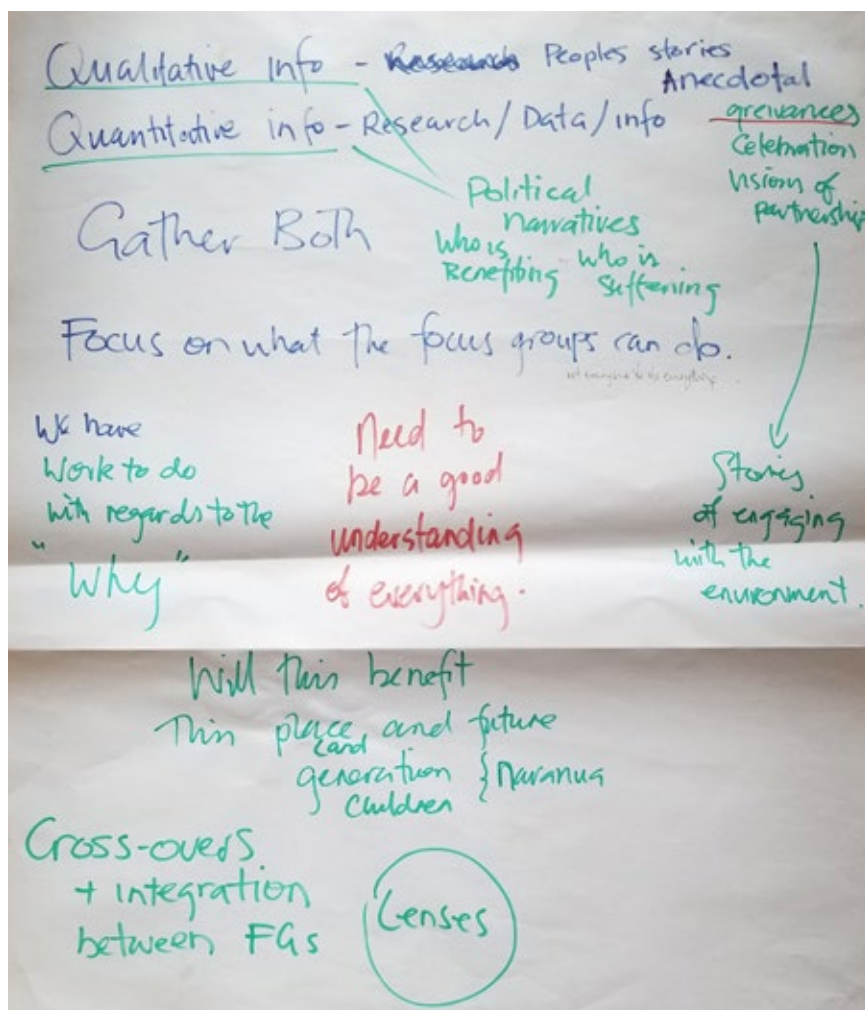 Qualitative info - Peoples stories
Anecdotal
greivances
Celebration
Visions of
partnership
Quantitative info - Research / Data / info
Political
narratives
Who is
Benefiting
who is
suffering
Gather Both
Focus on what the focus groups can do.
We have
Work to do
with regards to the
"Why"
Need to
be a good
understanding
of everything.
Stories
of engaging
with the
environment.
Will this benefit
This place and future
generation
children
Cross-overs
+ integration
between FGs
Lenses